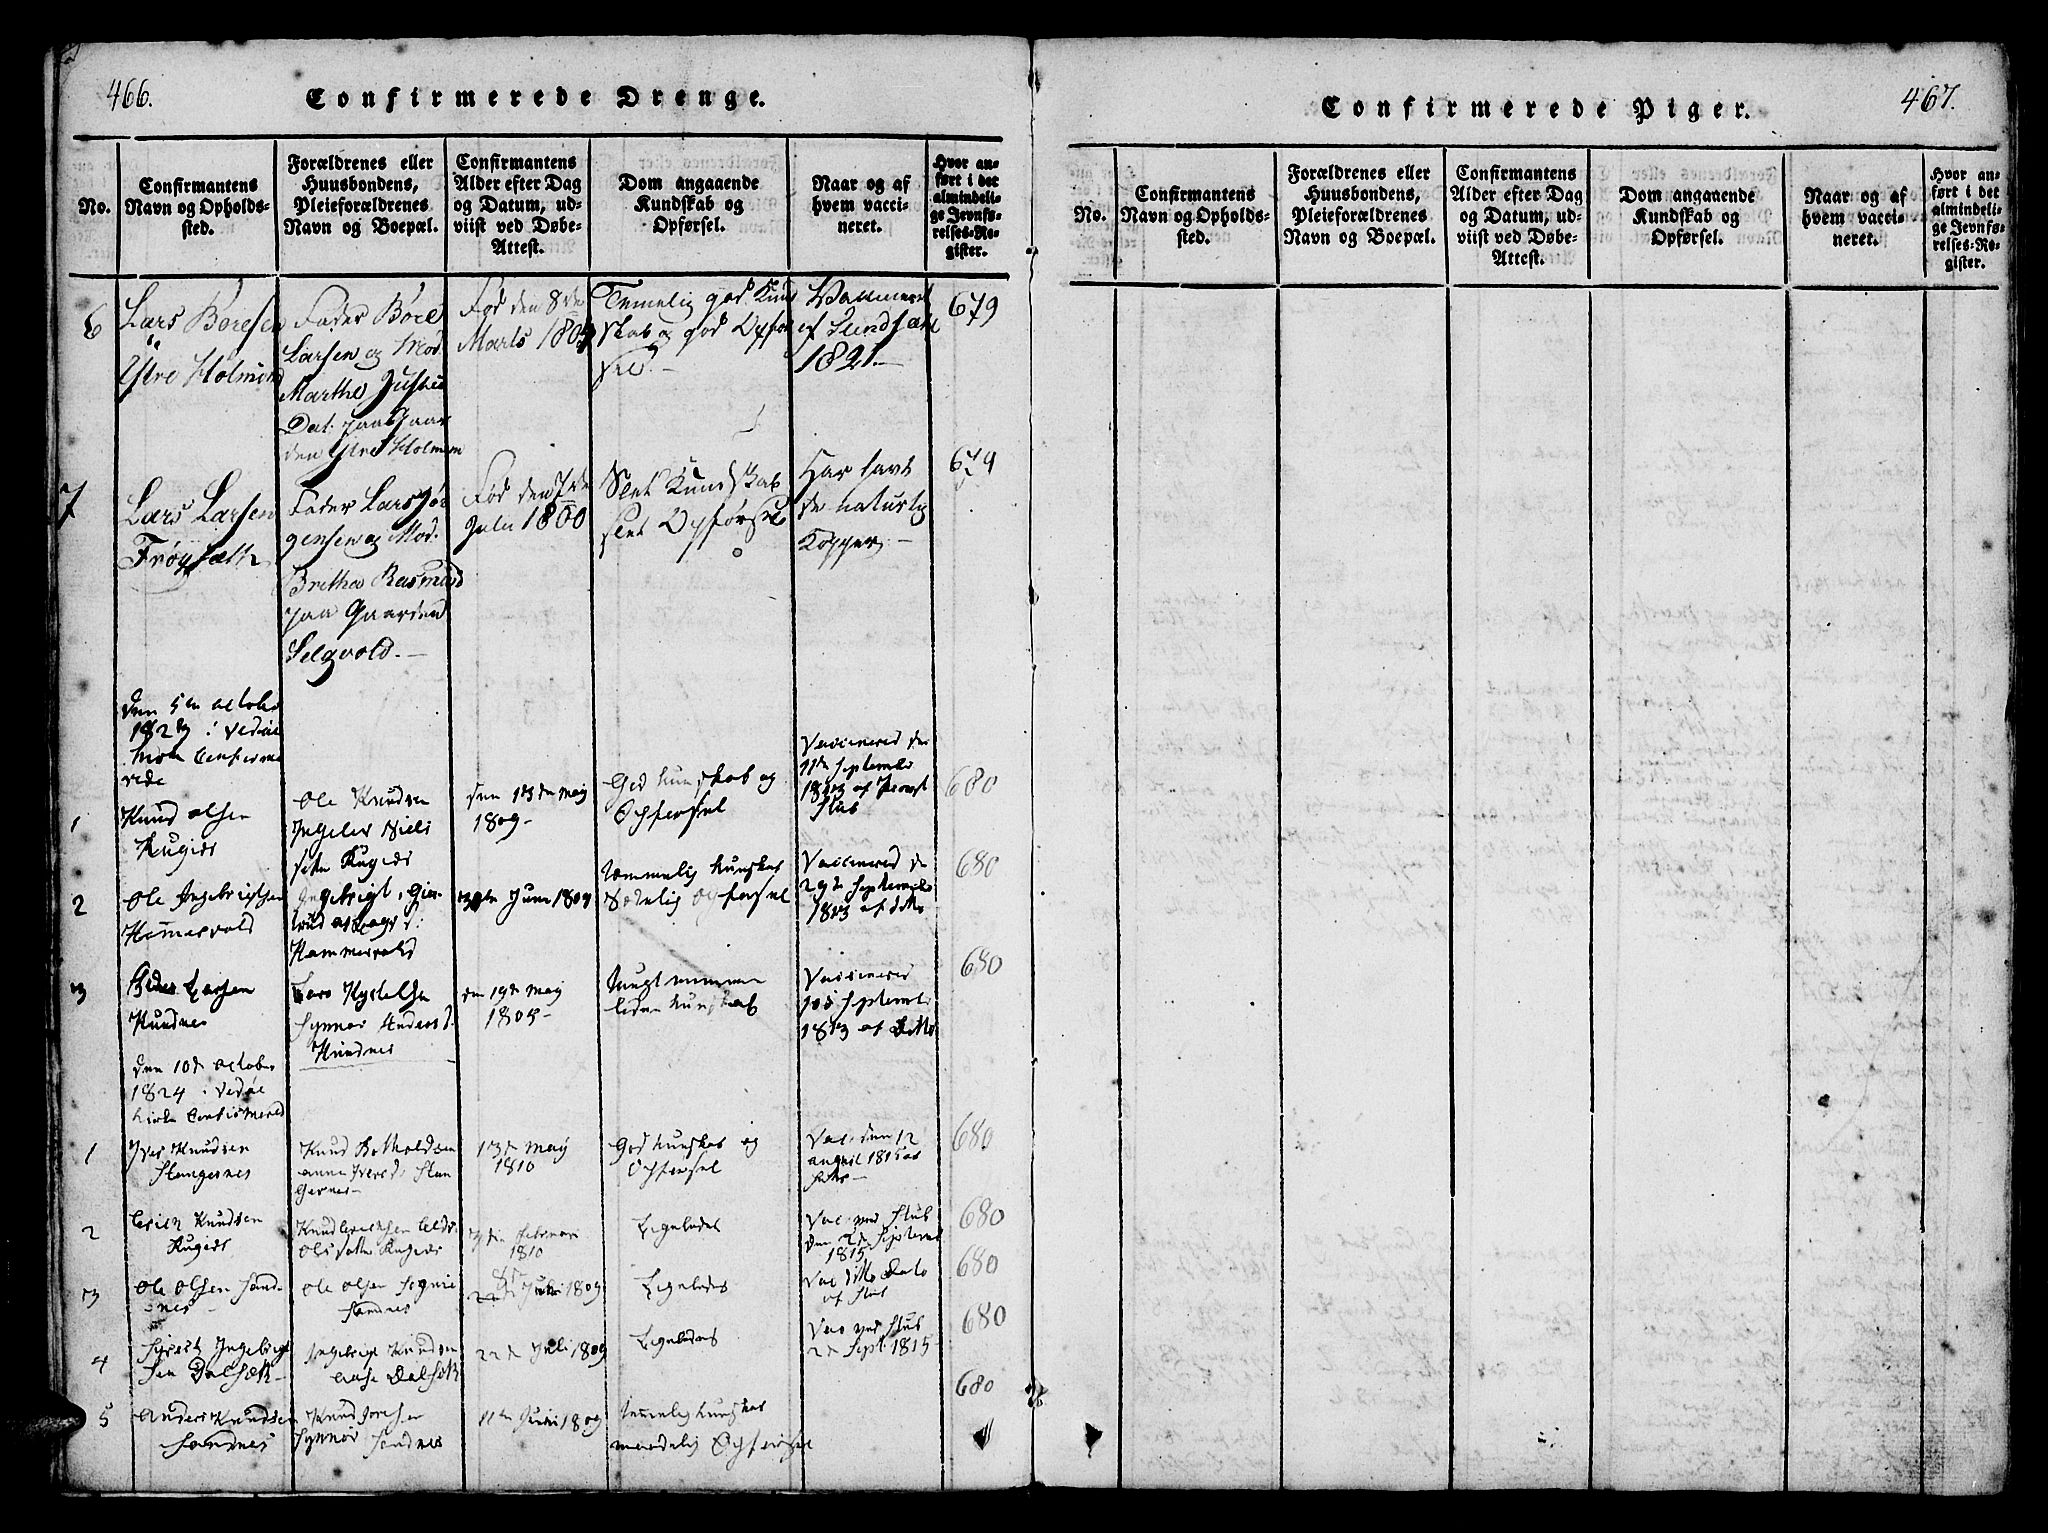 466.
Confirmerede Drenge.
No.
Confirmantens
Navn og Opholds-
sted.
Forældrenes eller
Huusbondens,
Pleieforældrenes
Navn og Boepæl.
Confirmantens
Alder efter Dag
og Datum, ud-
viist ved Døbe-
Attest.
Dom angaaende
Kundskab og
Opførsel.
Naar og af
hvem vacci-
neret.
Hvor an-
ført i det
almindeli-
ge Jevnfø-
relses-Re-
gister.
6
Lars Børesen
Ytre Holmen
Fader Børe
Larsen og Mod:
Marthe
Dat: paa Gaar
den Ytre Holmem
Fød den 8de
Marts
Temelig god Kund
skab og god Opfør
sel.
1821.
679
7
Lars Larsen
Frøysæth
Fader Lars Jør
gensen og Mod:
Brithe Rasmusd
paa Gaarden
Selgvold.
Fød den 7de
Julu 1800
Slet Kundskab
slet Opførsel
Har havt
de naturlig
Kopper
679
den 5te october
1823 i Vedøe
confirme
rede
1
Knud olsen
Rugids
Ole Knudsen
Ingeler Niels
datter Rugids
den 13de Maj
1809
God kunskab og
Opførsel
Vaccinered den
11te September
1813 af Provst
Stub
680
2
Ole Ingebrigtsen
Hammervold
Ingebrigt
Hammervold
Juni 1809
temmelig kunskab
Sædelig opførsel
Vaccinered de
29de September
1813 af ditto
680
3
Larsen
Hundnes
Lars
Synnøv Andersd:
Hundnes
den 19de Maj
1805
tungt nemme
liden kunskab
Vaccinered
September
1813 af Ditto
680
den 10de october
1824 i Vedøe
kirke Confirmered
1
Iver Knudsen
Stangernes
Knud Botholdsen
anne Iversd: Stan
gernes
13de Maj
1810
God kunskab og
Opførsel
Vac: den 12
august 1815 af
ditto
680
2
Erich Knudsen
Rugids
Knud Erichsen
Ols datter Rugids
Februari
1810
Ligeledes
Vac ved Stub
den 2de September
1815
680
3
Ole Olsen Sand
nes
Ole Olsen
Sandnes
Juli 1809
Ligeledes
Vac ditto Dato
af Stub
680
4
Ingebrigt
sen Dalsæth
Ingebrigt Knudsen
Aase Dalsæth
22de Juli 1809
Ligeledes
Vac ved Stub
2de Sept 1815
680
5
Anders Knudsen
Sandnes
Knud
Synnøv Sandnes
11te Juni 1809
temmelig kunskab
maadelig Opførsel
680
467.
Confirmerede Piger.
No.
Confirmantens
Navn og Opholds-
sted.
Forældrenes eller
Huusbondens,
Pleieforældrenes
Navn og Boepæl.
Confirmantens
Alder efter Dag
og Datum, ud-
viist ved Døbe-
Attest.
Dom angaaende
Kundskab og
Opførsel.
Naar og af
hvem vacci-
neret.
Hvor an-
ført i det
almindeli-
ge Jevnfø-
relses-Re-
gister.